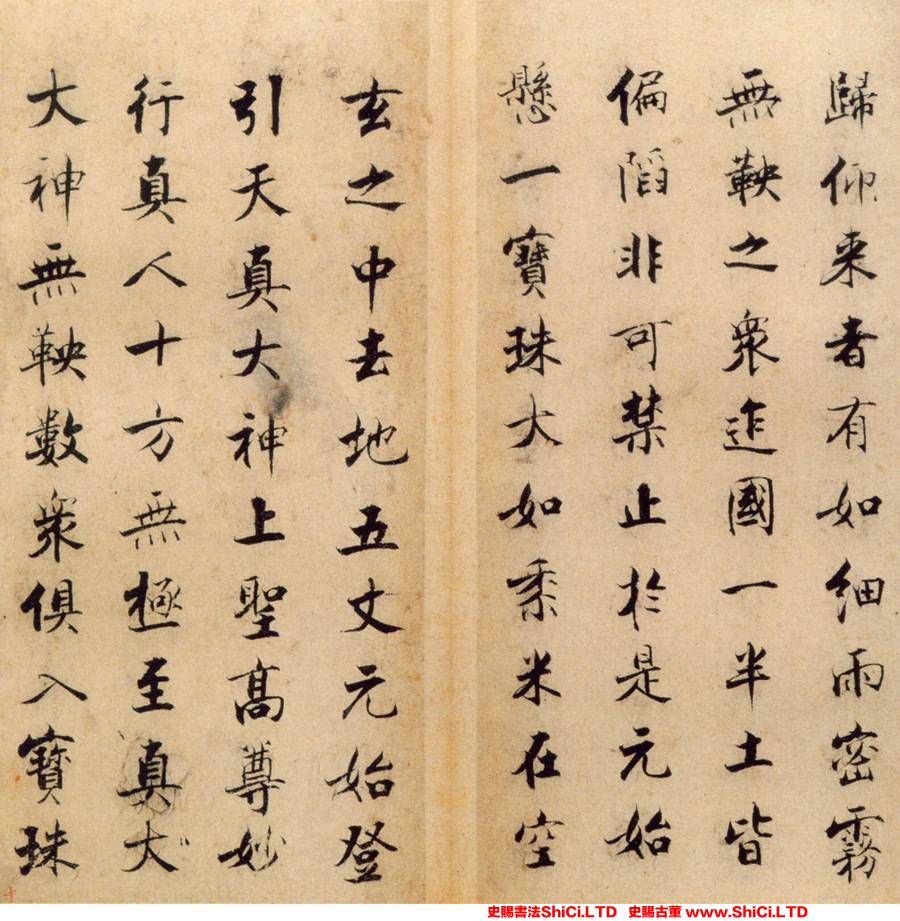 歸仰来者有如细雨密霧
無鞅之衆迮國一半土皆
偏陷非可禁止於是元始
懸一寶珠大如黍米在空
玄之中去地五丈元始登
引天真大神上聖高尊妙
行真人十方無極至真大
大神無鞅數衆俱入寶珠
史賜書法ShiCi.LTD 史賜古董 www.ShiCi.LTD